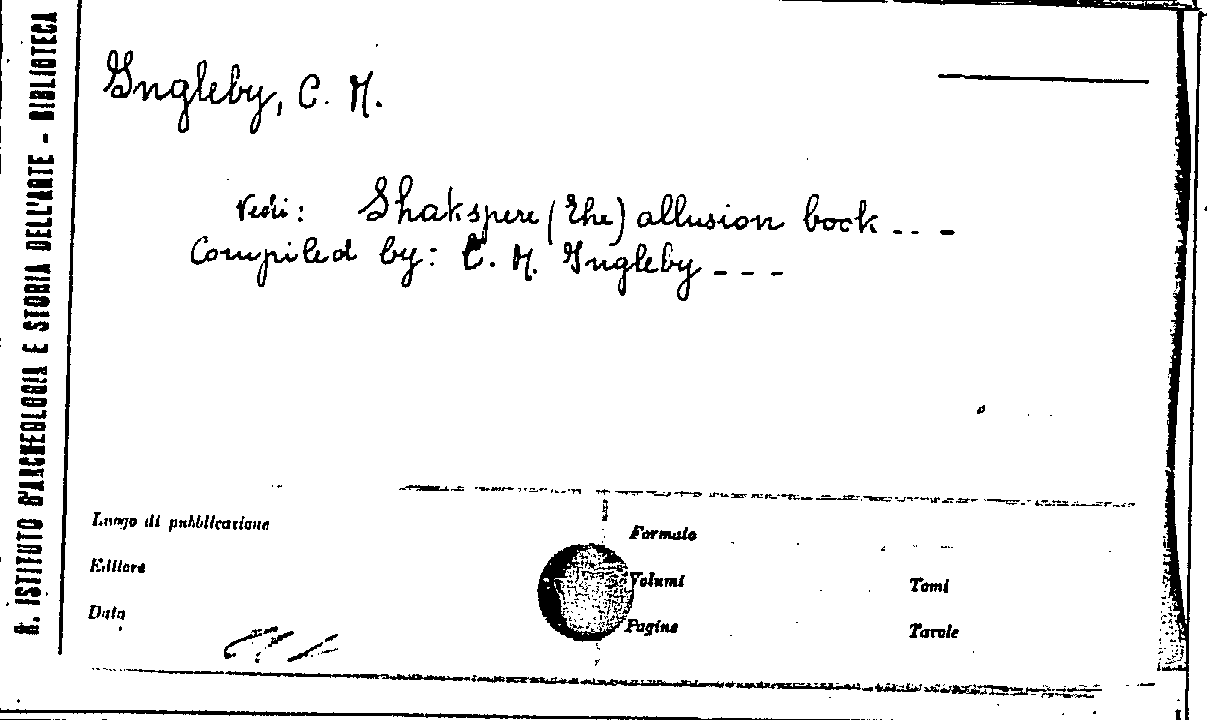 R. ISTITUTO D'ARCHEOLOGIA E STORIA DELL'ARTE - BIBLIOTECA
Ingleby, C. M.
Vedi: Shakspere (The) allusion book . . -
Compiled by: C. M. Ingleby - - -
Luogo di pubblicazione
Editore
Data
Formato
Volumi
Tomi
Pagine
Tavole